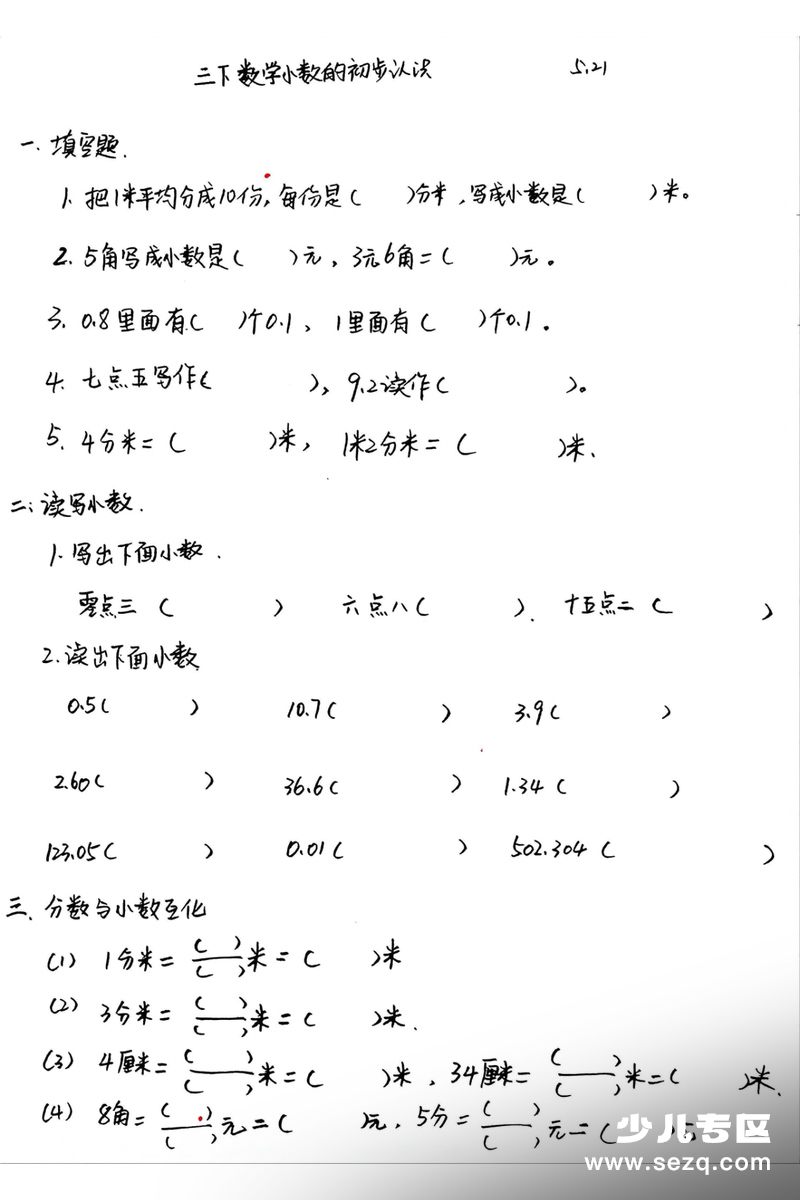 三下数学小数的初步认识 5.21
一、填空题.
1. 把1米平均分成10份,每份是( )分米,写成小数是( )米。
2. 5角写成小数是( )元,3元6角=( )元。
3. 0.8里面有( )个0.1、1里面有( )个0.1。
4. 七点五写作( ),9.2读作( )。
5. 4分米=( )米,1米2分米=( )米.
二、读写小数.
1. 写出下面小数.
零点三( ) 六点八( ). 十五点二( )
2. 读出下面小数
0.5( ) 10.7( ) 3.9( )
2.60( ) 36.6( ) 1.34( )
123.05( ) 0.01( ) 502.304( )
三、分数与小数互化
(1) 1分米=( )/( )米=( )米
(2) 3分米=( )/( )米=( )米.
(3) 4厘米=( )/( )米=( )米,34厘米=( )/( )米=( )米.
(4) 8角=( )/( )元=( )元,5分=( )/( )元=(
少儿专区
www.sezq.com